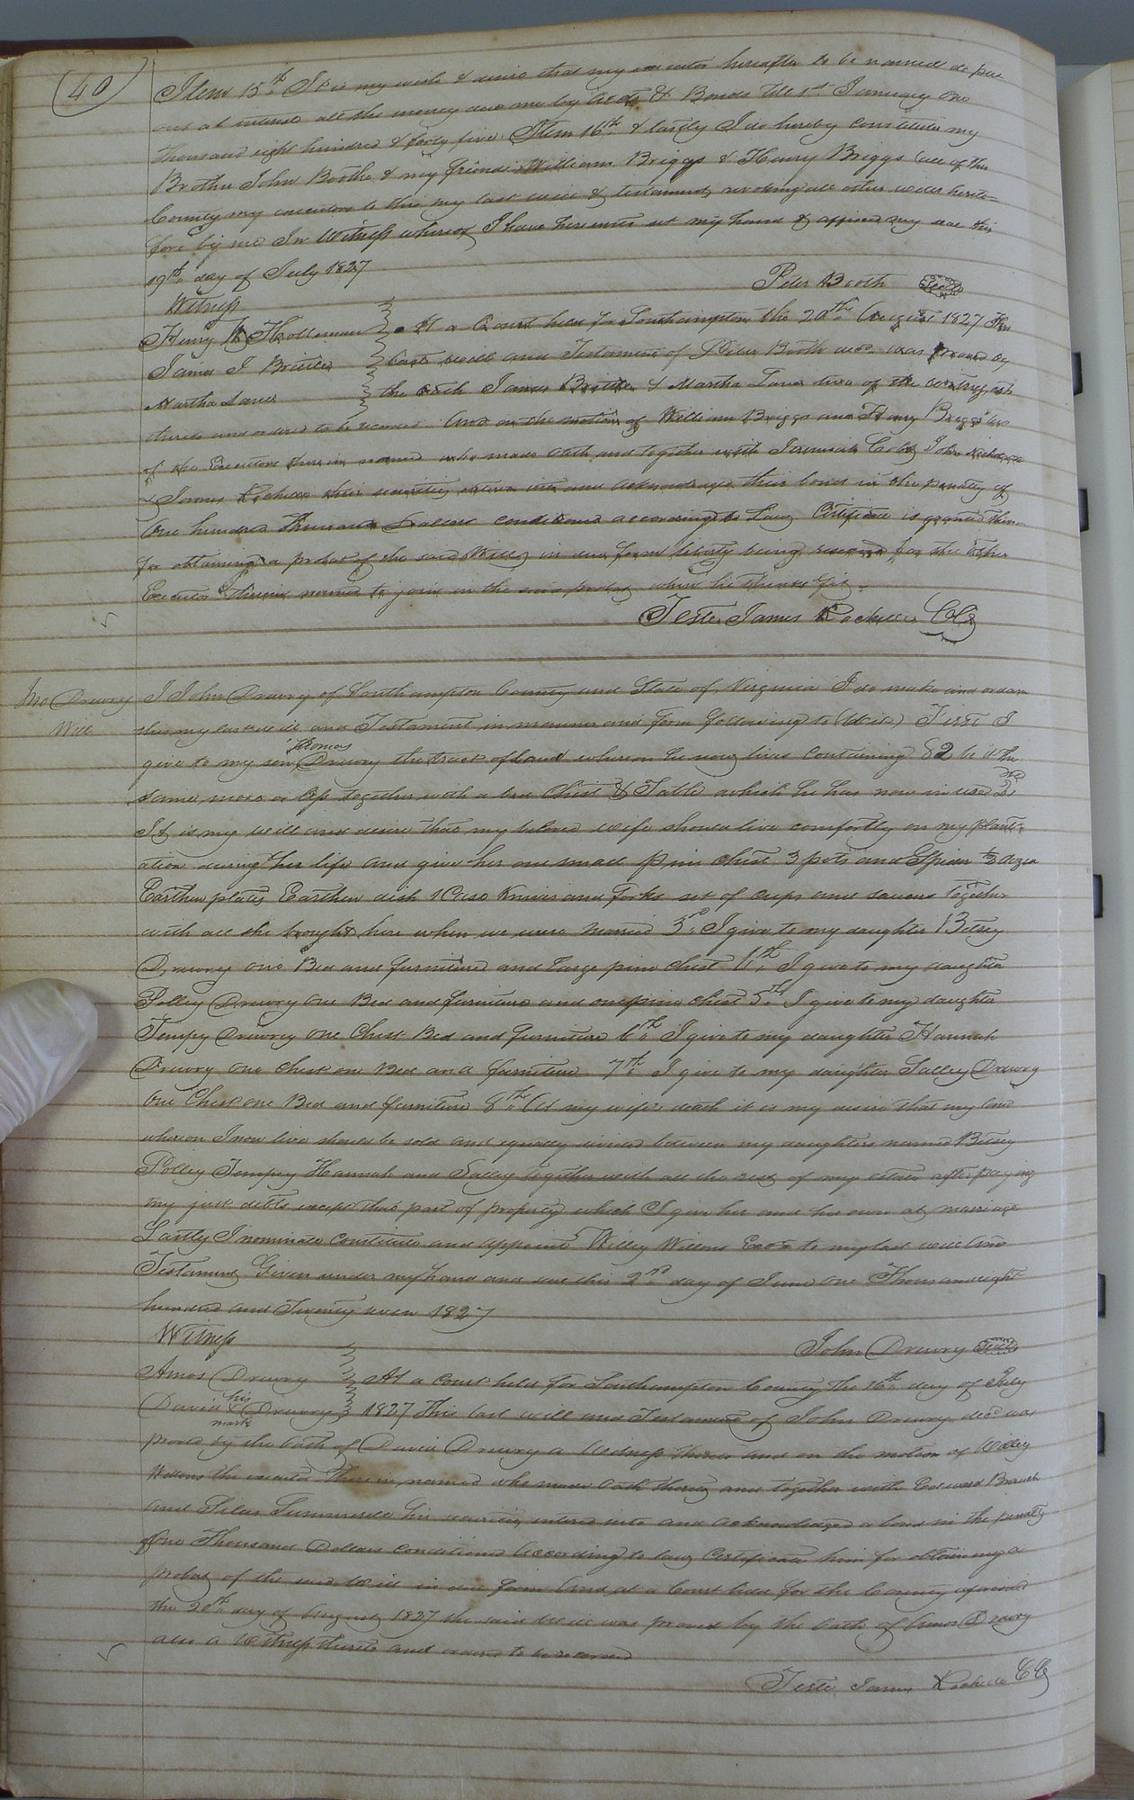 (40)
Item 15th It is my wish & desire that my executor hereafter to be named do put
out at interest all the money due me by & Bonds till 1st January one
thousand eight hundred & forty five. Item 16th & lastly I do hereby constitute my
Brother John Boothe & my friends William Briggs & Henry Briggs (all of this
County my executors to this my last will & testament, revoking all other wills hereto=
fore by me In Witness whereof I have hereunto set my hand & affixed my seal this
19th day of July 1827
Peter Booth Seal
Witness
Henry Holleman
James J Britten
Martha Lanier
At a Court held for Southampton the 20th August 1827 This
last will and Testament of Peter Booth decd was proved by
the oath James Britten & Martha two of the witnesses
thereto and ordered to be recorded. And on the motion of William Briggs and Henry Briggs two
of the Executors therein named who made oath and together with Jeremiah Cobb John
& James Rochelle their securities entered into and acknowledged their bond in the penalty of
One hundred Thousand Dollars conditioned according to Law Certificate is granted them
for obtaining a probat of the said Will in due form liberty being reserved for the other
Executor therein named to join in the said probat when he thinks fit.
Teste James Rochelle CC
Jno Drewry
Will
I John Drewry of Southampton County and State of Virginia I do make and ordain
this my last will and Testament in manner and form following to (Wit) First I
give to my son Thomas Drewry the tract of Land whereon he now lives containing 82 be it the
same more or less together with a bed Chest & Table which he has now in use 2nd
It is my will and desire that my beloved wife should live comfortly on my plant-
ation during her life and give her one small pine chest 3 pots and Spider ½ dozen
Earthen plates Earthen dish 1 Case Knives and forks set of cups and saucers together
with all she brought here when we were married 3rd I give to my daughter Betsey
Drewry one Bed and furniture and large pine chest 4th I give to my daughter
Polley Drewry one Bed and furniture and one pine chest 5th I give to my daughter
Tempy Drewry one Chest Bed and furniture 6th I give to my daughter Hannah
Drewry one Chest one Bed and furniture 7th I give to my daughter Salley Drewry
one Chest one Bed and furniture 8th At my wife's death it is my desire that my land
whereon I now live should be sold and equally divided between my daughters named Betsey
Polley Tempey Hannah and Salley together with all the rest of my estate after paying
my just debts except that part of property which I gave her and her own at marriage
Lastly I nominate constitute and appoint Willey Willons Exor to my last will and
Testament Given under my hand and seal this 2nd day of June one Thousand eight
hundred and Twenty seven 1827
Witness
John Drewry Seal
Amos Drewry
David his mark Drewry
At a Court held for Southampton County the 16th day of July
1827 This last will and Testament of John Drewry decd was
proved by the Oath of David Drewry a Witness thereto and on the motion of Willey
Willons the executor therein named who made Oath thereto and together with Edward Branch
and Silas Summerell his securities entered into and acknowledged a bond in the penalty
of One Thousand Dollars conditioned According to law Certificate him for obtaining a
probat of the said Will in due form And at a Court held for the County aforesaid
the 20th day of August 1827 the said Will was proved by the Oath of Amos Drewry
also a Witness thereto and ordered to be recorded
Teste James Rochelle CC